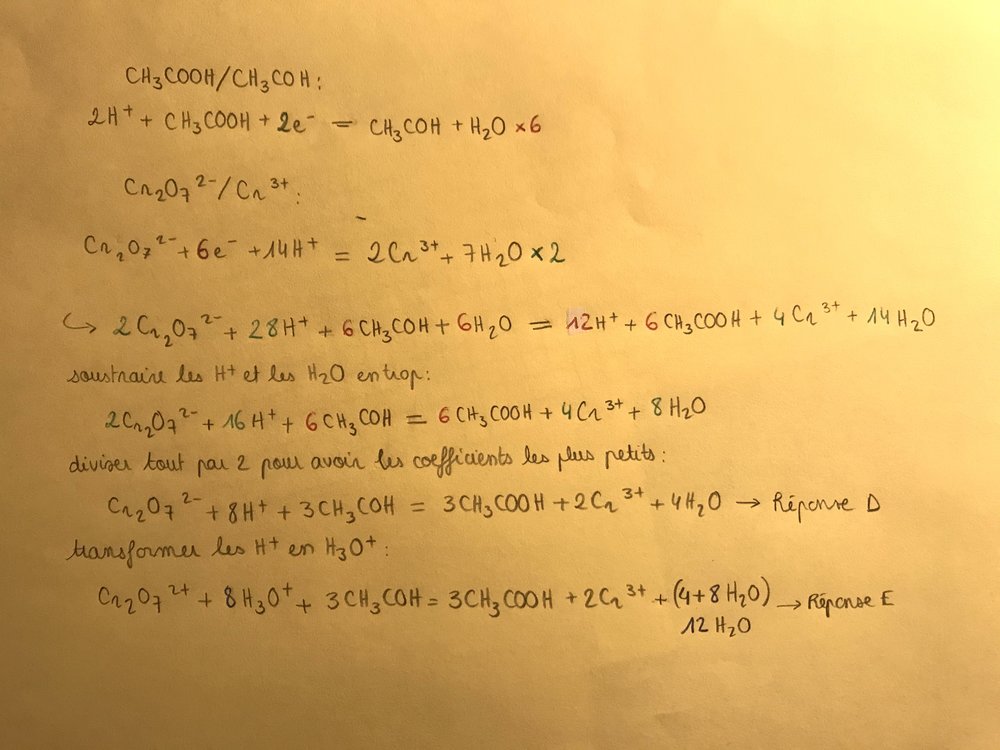 CH₃COOH/CH₃COH :
2H⁺ + CH₃COOH + 2e⁻ = CH₃COH + H₂O ×6
Cr₂O₇²⁻/Cr³⁺ :
Cr₂O₇²⁻ + 6e⁻ + 14H⁺ = 2Cr³⁺ + 7H₂O ×2
↪ 2Cr₂O₇²⁻ + 28H⁺ + 6CH₃COH + 6H₂O = 12H⁺ + 6CH₃COOH + 4Cr³⁺ + 14H₂O
soustraire les H⁺ et les H₂O en trop :
2Cr₂O₇²⁻ + 16H⁺ + 6CH₃COH = 6CH₃COOH + 4Cr³⁺ + 8H₂O
diviser tout par 2 pour avoir les coefficients les plus petits :
Cr₂O₇²⁻ + 8H⁺ + 3CH₃COH = 3CH₃COOH + 2Cr³⁺ + 4H₂O → Réponse D
transformer les H⁺ en H₃O⁺ :
Cr₂O₇²⁺ + 8H₃O⁺ + 3CH₃COH = 3CH₃COOH + 2Cr³⁺ + (4+8H₂O) → Réponse E
12H₂O